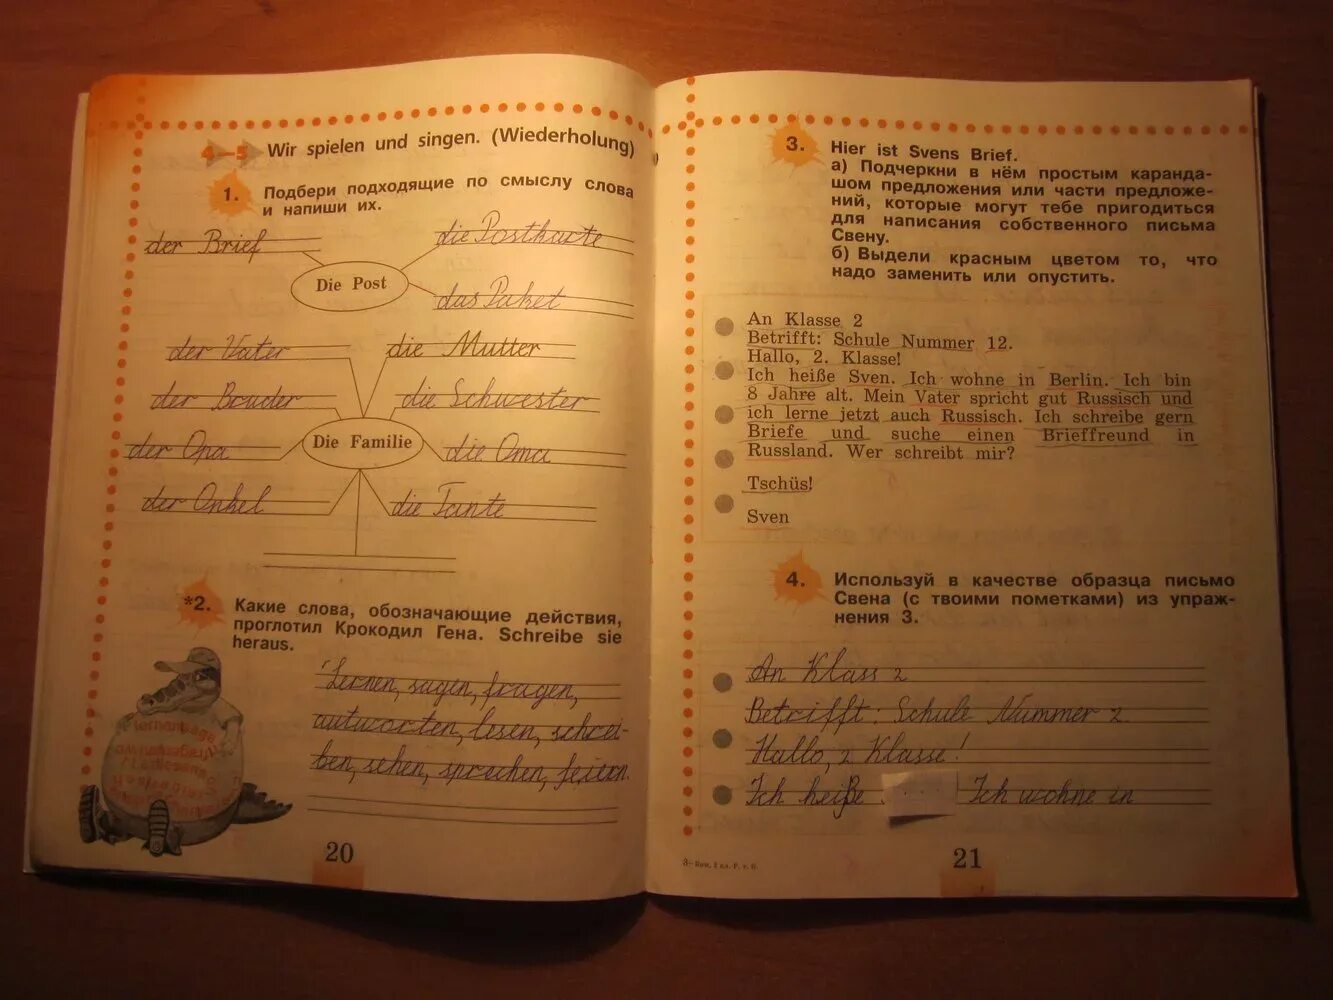 4–5 Wir spielen und singen. (Wiederholung)
1. Подбери подходящие по смыслу слова
и напиши их.
der Brief
die Postkarte
Die Post
das Paket
der Vater
die Mutter
der Bruder
die Schwester
Die Familie
der Opa
die Oma
der Onkel
die Tante
*2. Какие слова, обозначающие действия,
проглотил Крокодил Гена. Schreibe sie
heraus.
Lernen, sagen, fragen,
antworten, lesen, schrei-
ben, sehen, sprechen, feiern.
20
3. Hier ist Svens Brief.
а) Подчеркни в нём простым каранда-
шом предложения или части предложе-
ний, которые могут тебе пригодиться
для написания собственного письма
Свену.
б) Выдели красным цветом то, что
надо заменить или опустить.
An Klasse 2
Betrifft: Schule Nummer 12.
Hallo, 2. Klasse!
Ich heiße Sven. Ich wohne in Berlin. Ich bin
8 Jahre alt. Mein Vater spricht gut Russisch und
ich lerne jetzt auch Russisch. Ich schreibe gern
Briefe und suche einen Brieffreund in
Russland. Wer schreibt mir?
Tschüs!
Sven
4. Используй в качестве образца письмо
Свена (с твоими пометками) из упраж-
нения 3.
An Klass 2
Betrifft: Schule Nummer 2
Hallo, 2 Klasse!
Ich heiße Ich wohne in
21